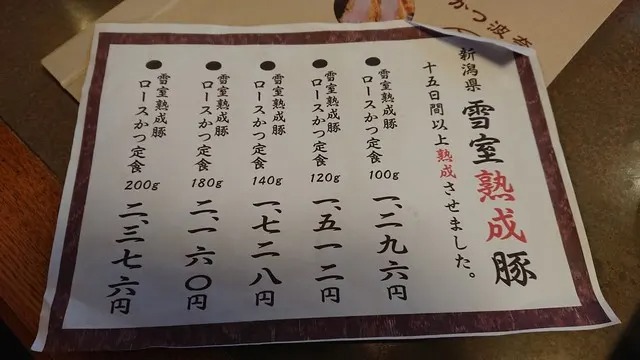 かつ波奈
新潟県 雪室熟成豚
十五日間以上熟成させました。
● 雪室熟成豚
ロースかつ定食 100g 一、二九六円
● 雪室熟成豚
ロースかつ定食 120g 一、五一二円
● 雪室熟成豚
ロースかつ定食 140g 一、七二八円
● 雪室熟成豚
ロースかつ定食 180g 二、一六〇円
● 雪室熟成豚
ロースかつ定食 200g 二、三七六円